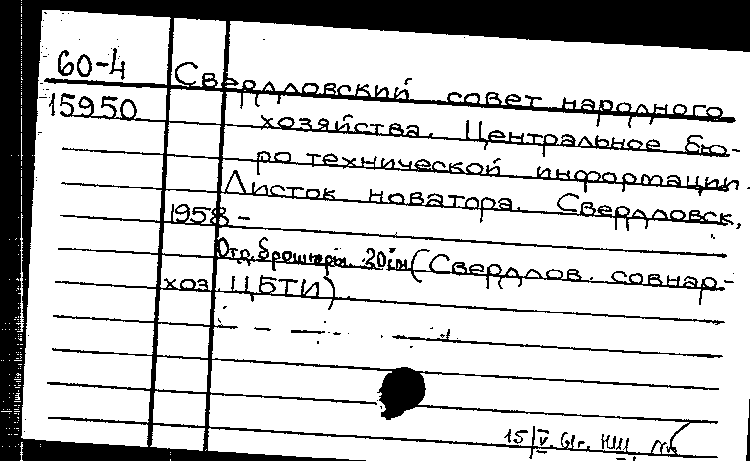 60-4 Свердловский совет народного
15950 хозяйства. Центральное бю-
ро технической информации.
Листок новатора. Свердловск,
1958-
Отд. брошюры. 20см (Свердлов. совнар-
хоз. ЦБТИ)
15/V. 61г.